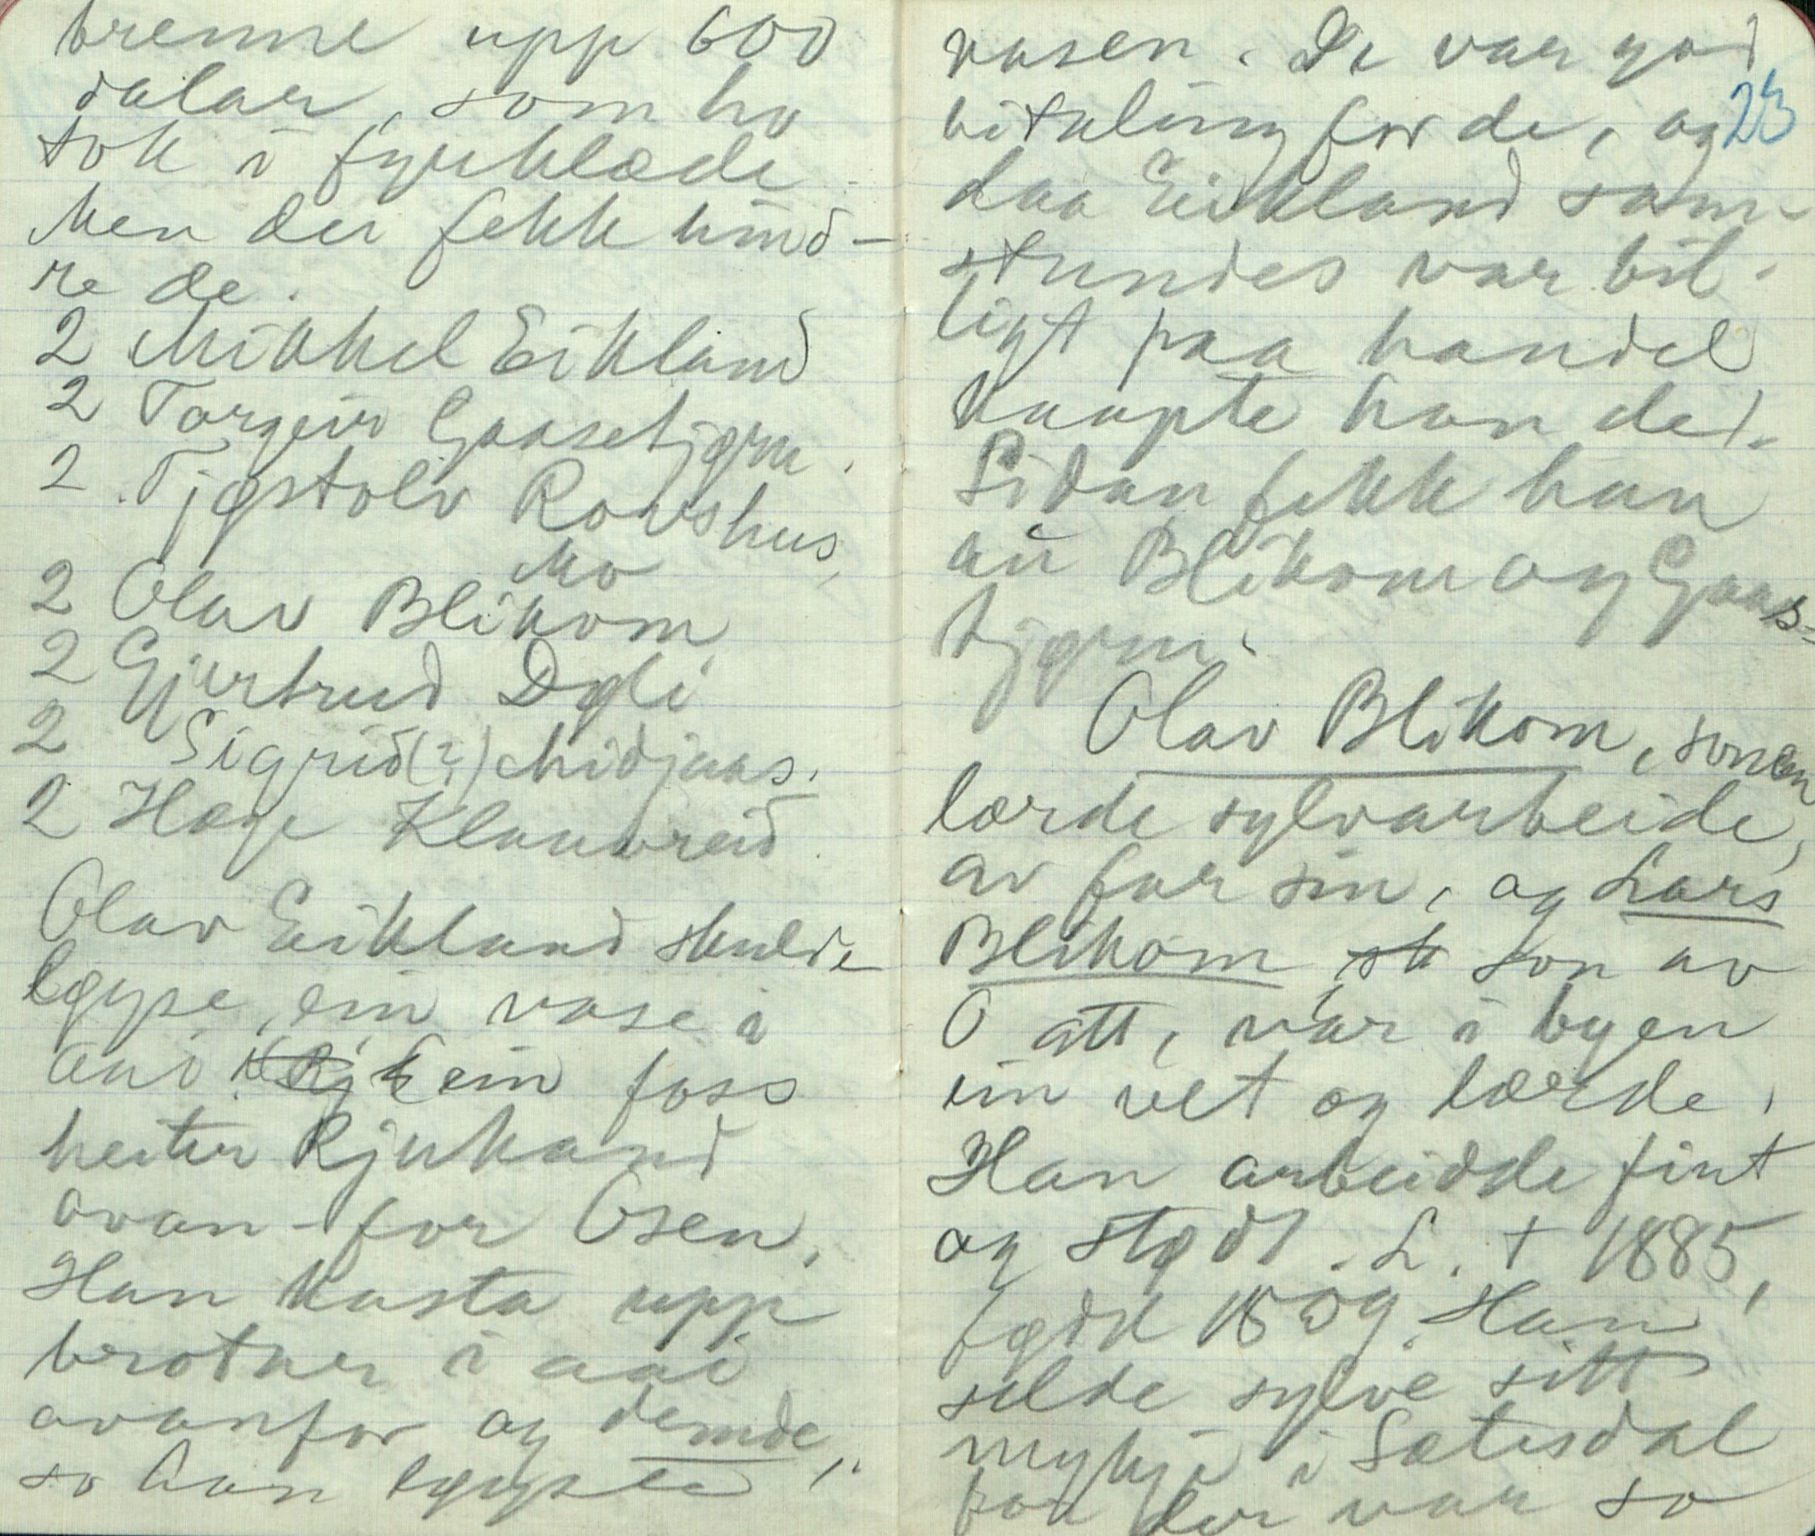 brenne upp 600
dalar, som ho
tok i fyrklæde.
Men dei fekk hind-
re de.
2 Mikkel Eikland
2 Torgeir Gaasetjørn.
2. Tjøstolv Rovshus,
Mo
2 Olav Blikom,
2 Gjertrud Døli
2 Sigrid(?) Midjaas.
2 Hæge Klauvreid.
Olav Eikland skulde
løyse ein vase i
aai ein foss
heiter Rjukand
ovan-for Osen.
Han kasta upp
brotner i aai
ovanfor og demde,
so han løyste
vasen. De var god
23
bitaling for de, og
daa Eikland som-
stundes var bil-
ligt paa handel
kaupte han del.
Sidan fekk han
au Blikom og Gaas-
tjørn.
Olav Blikom, sonen
lærde sylvarbeide,
av far sin, og Lars
Blikom, st son av
O att, var i byen
ein vet og lærde.
Han arbeidde fint
og stødt. L. † 1885,
fødd 1809. Han
selde sylve sitt
mykje i Sætesdal
for der var so